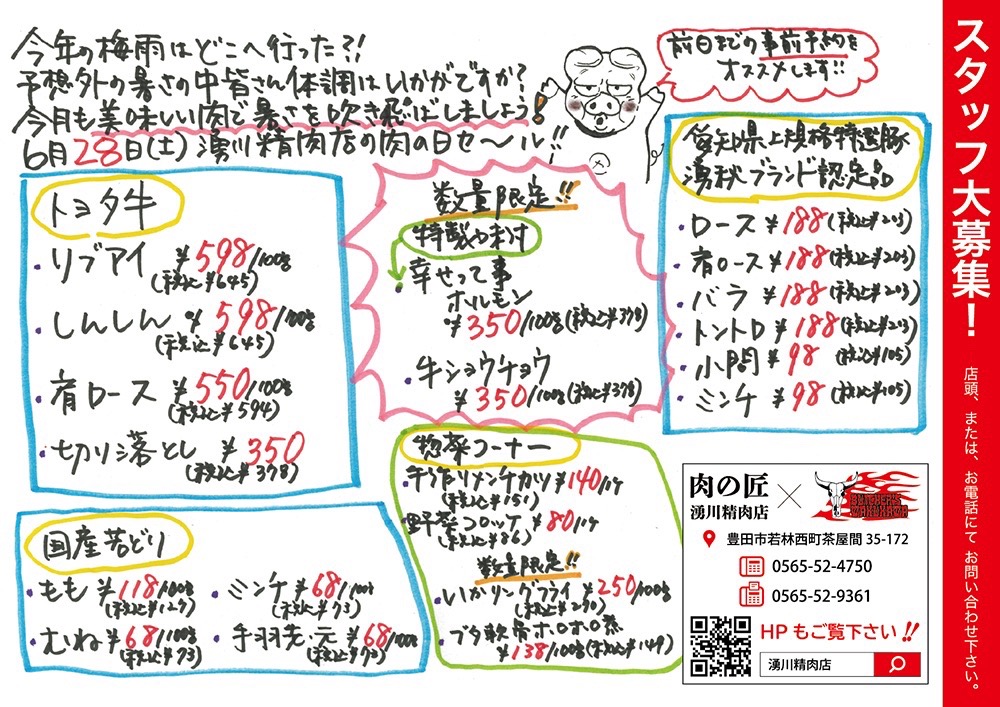 今年の梅雨はどこへ行った?!
予想外の暑さの中皆さん体調はいかがですか?
今月も美味しい肉で暑さを吹き飛ばしましょう!
6月28日(土) 湧川精肉店の肉の日セ〜ル!!
前日までの事前予約を
オススメします!!
トヨタ牛
・リブアイ ¥598/100g
(税込¥645)
・しんしん ¥598/100g
(税込¥645)
・肩ロース ¥550/100g
(税込¥594)
・切り落とし ¥350
(税込¥378)
数量限定!!
特製
・幸せって事
ホルモン
¥350/100g(税込¥378)
・牛ショウチョウ
¥350/100g(税込¥378)
愛知県上規格特選豚
湧秋ブランド認定品
・ロース ¥188(税込¥203)
・肩ロース ¥188(税込¥203)
・バラ ¥188(税込¥203)
・トントロ ¥188(税込¥203)
・小間 ¥98 (税込¥105)
・ミンチ ¥98(税込¥105)
国産若どり
・もも ¥118/100g
(税込¥127)
・ミンチ ¥68/100g
(税込¥73)
・むね ¥68/100g
(税込¥73)
・手羽先・元 ¥68/100g
(税込¥73)
惣菜コーナー
手作りメンチカツ ¥140/ケ
(税込¥151)
野菜コロッケ ¥80/ケ
(税込¥86)
数量限定!!
・いかリングフライ ¥250/100g
(税込¥270)
・ブタ軟骨ホロホロ煮
¥138/100g(税込¥149)
肉の匠
湧川精肉店
×
BUTCHER'S
WAKUKAWA
豊田市若林西町茶屋間 35-172
0565-52-4750
0565-52-9361
HP もご覧下さい!!
湧川精肉店
スタッフ大募集!
店頭、または、お電話にて お問い合わせ下さい。